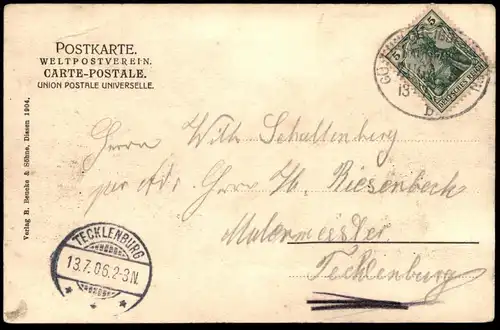 POSTKARTE.
WELTPOSTVEREIN.
CARTE-POSTALE.
UNION POSTALE UNIVERSELLE.
5 5
DEUTSCHES REICH
13
b
Herrn Wilh. Schallenberg
per Adr. Herrn H. Riesenbeck
Malermeister
Tecklenburg
TECKLENBURG
13.7.06.2-3N.
Verlag R. Bencke & Söhne, Dissen 1904.